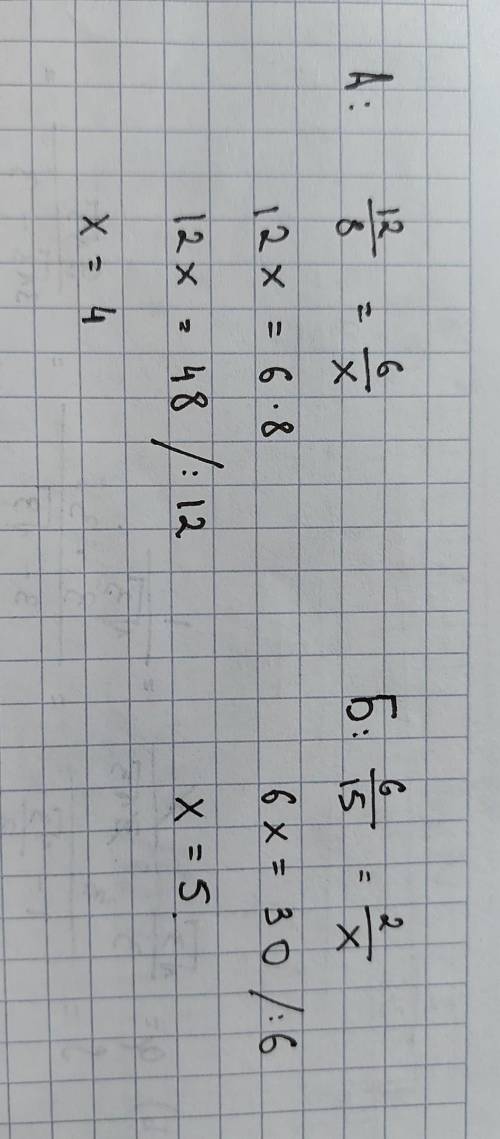 А: 12/8 = 6/x
12x = 6·8
12x = 48 /:12
x = 4
Б: 6/15 = 2/x
6x = 30 /:6
x = 5.